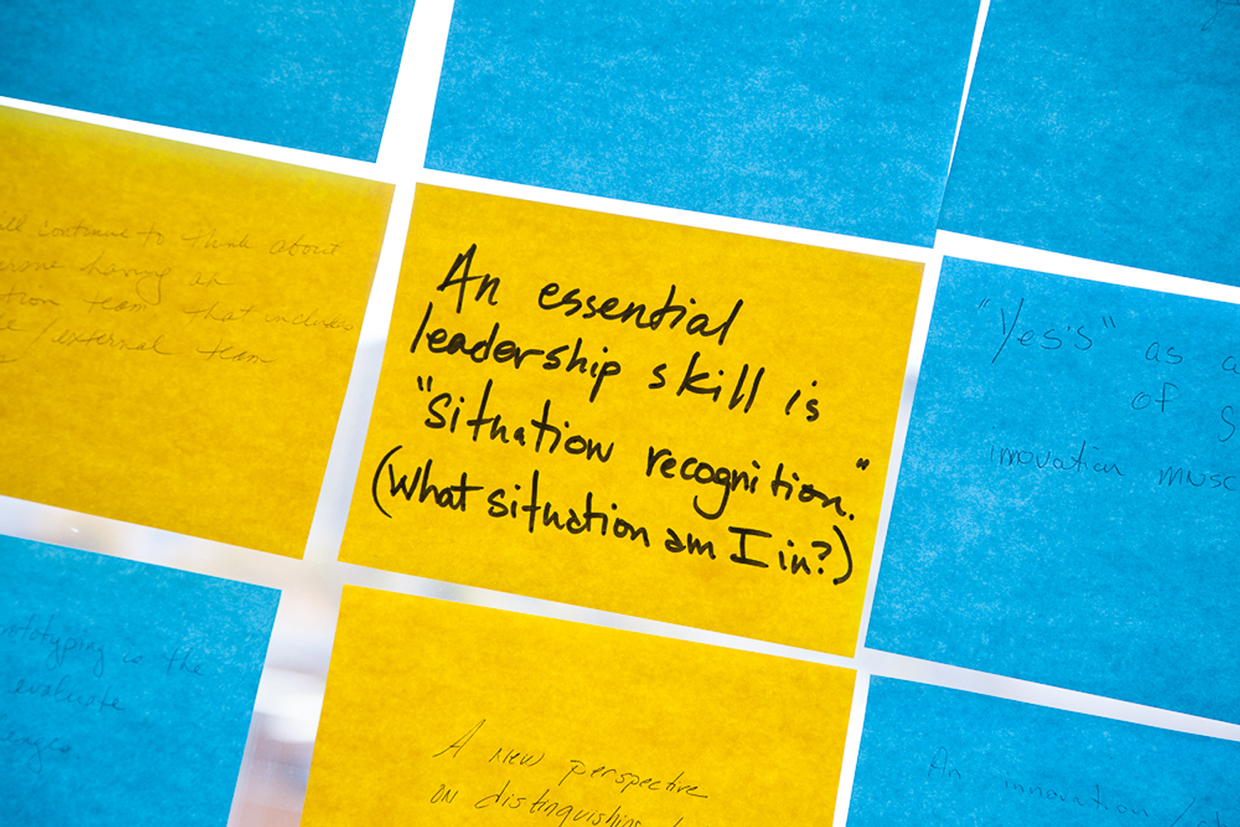 continue to think about
having an
team that includes
/external team
An essential
leadership skill is
"situation recognition."
(What situation am I in?)
"Yes's" as a
of
innovation
prototyping is the
evaluate
A new perspective
on distinguishing
An
innovation